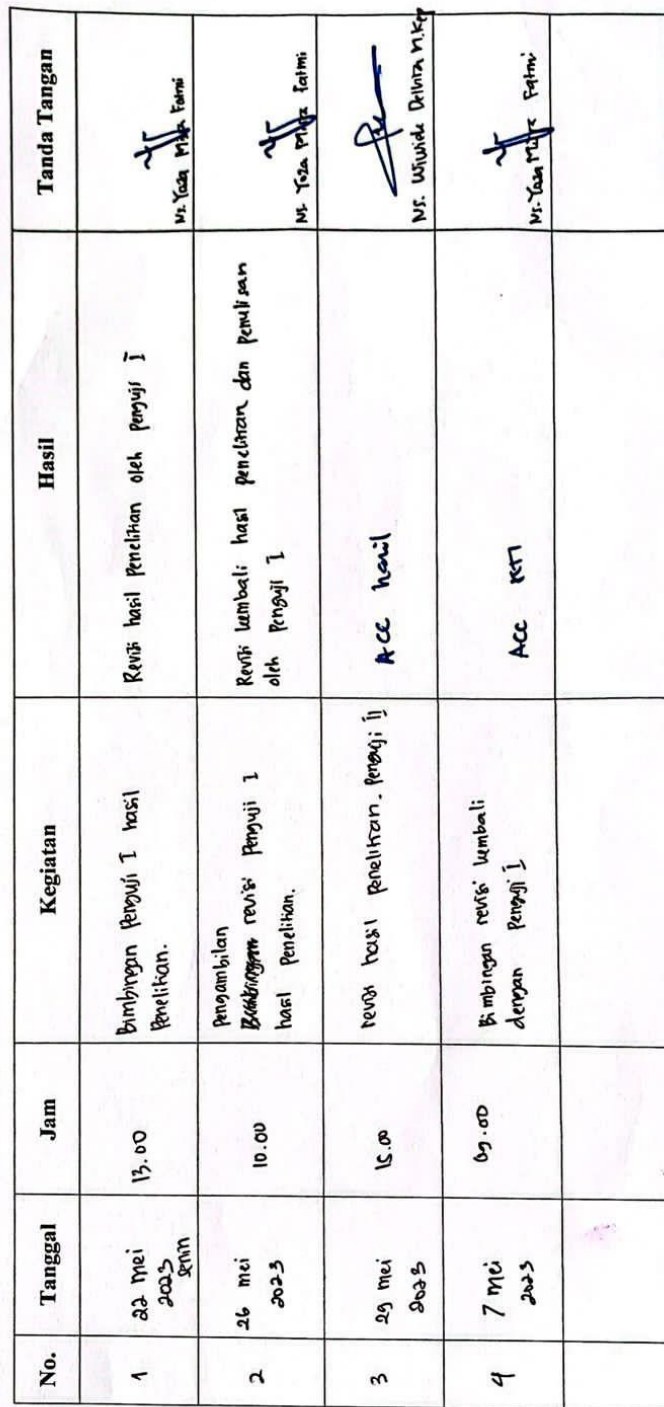 No. Tanggal Jam Kegiatan Hasil Tanda Tangan
1
22 mei
2023
senin
13.00
Bimbingan Penguji I hasil
Penelitian.
Revisi hasil Penelitian oleh penguji I
Ns. Yaza Mitra Fatmi
2
26 mei
2023
10.00
Pengambilan
revisi Penguji I
hasil Penelitian.
Revisi kembali hasil penelitian dan penulisan
oleh Penguji I
Ns. Yaza Mitra Fatmi
3
29 mei
2023
15.00
revisi hasil penelitian. Penguji II
ACC hasil
Ns. Wiwide Delvira M.Kep
4
7 mei
2023
09.00
Bimbingan revisi kembali
dengan Penguji I
ACC KTI
Ns. Yaza Mitra Fatmi